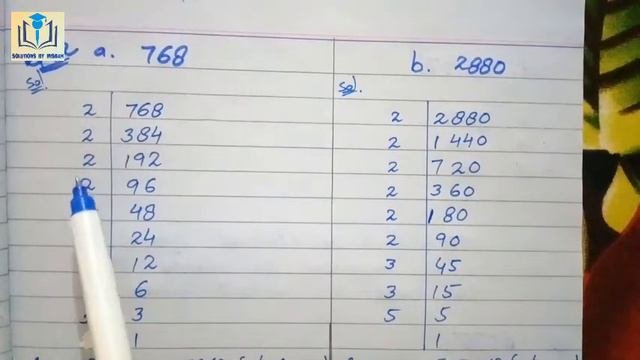 SOLUTIONS BY MISBAH
a. 768
Sol.
2 768
2 384
2 192
2 96
48
24
12
6
3
1
b. 2880
Sol.
2 2880
2 1440
2 720
2 360
2 180
2 90
3 45
3 15
5 5
1